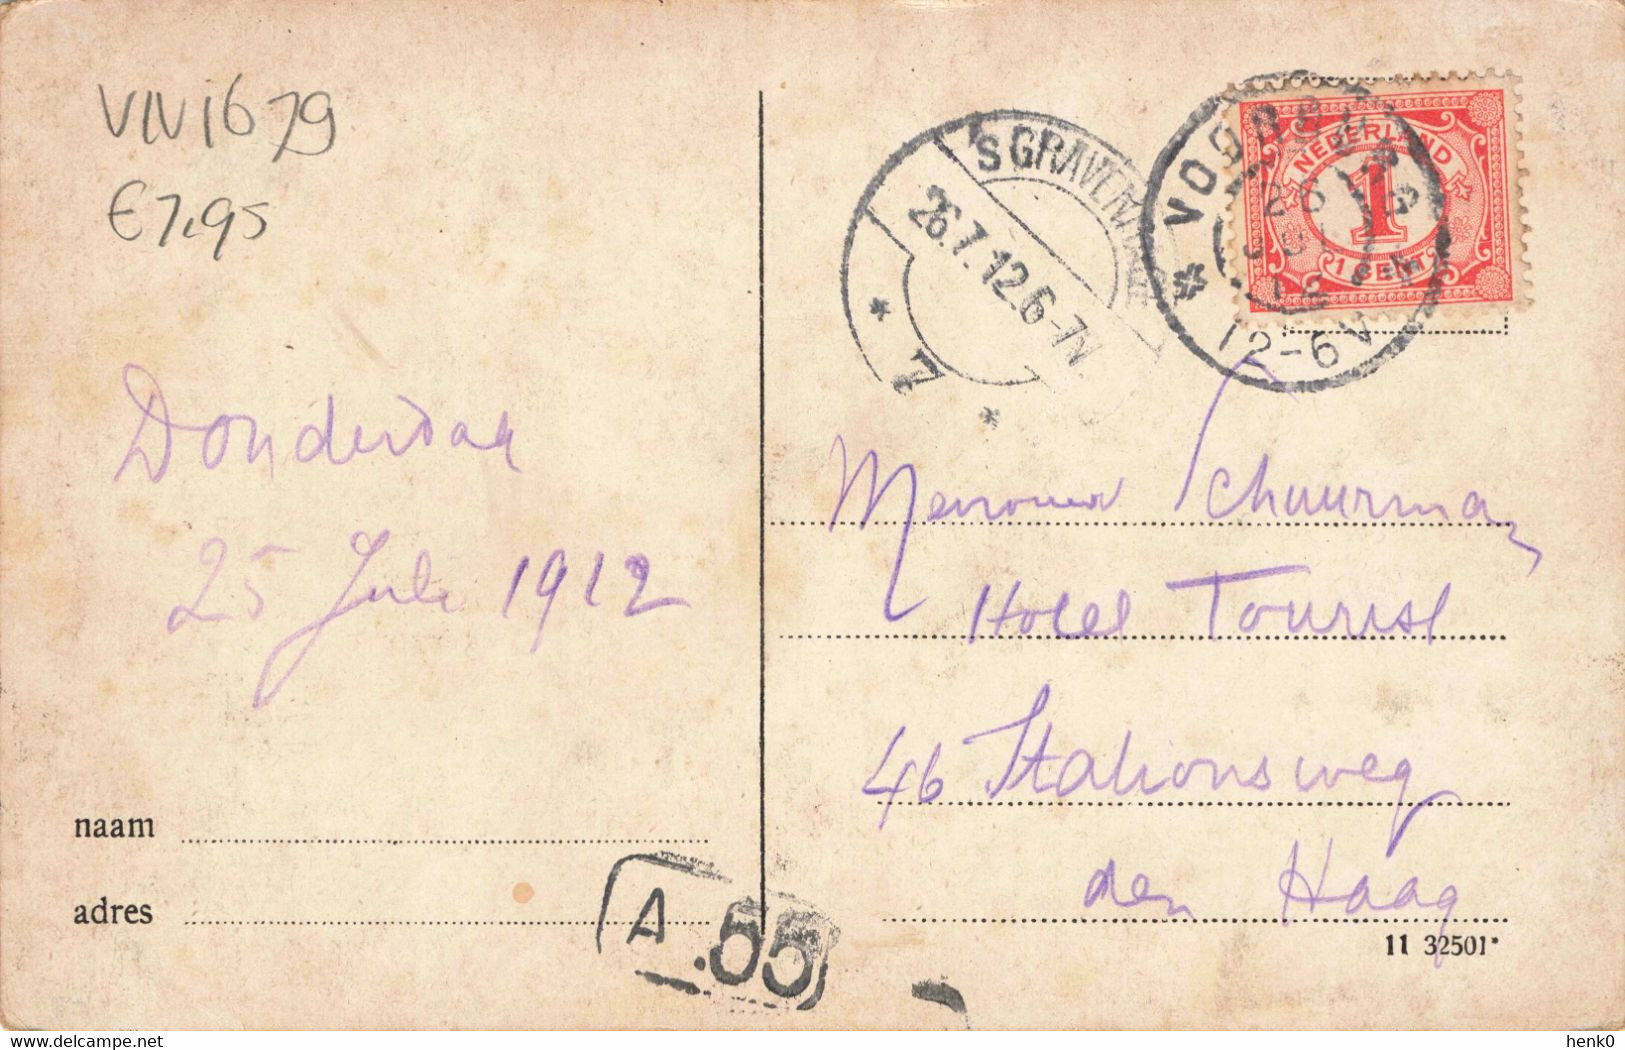 VIV1679
€7,95
'S GRAVENHAGE
26.7.12.6-7N.
NEDERLAND
1
1 CENT
26
12-6V
Donderdag
25 Juli 1912
Mevrouw Schuurman
Hotel Tourist
46 Stationsweg
den Haag
naam
adres
A.55
11 32501*
henk0